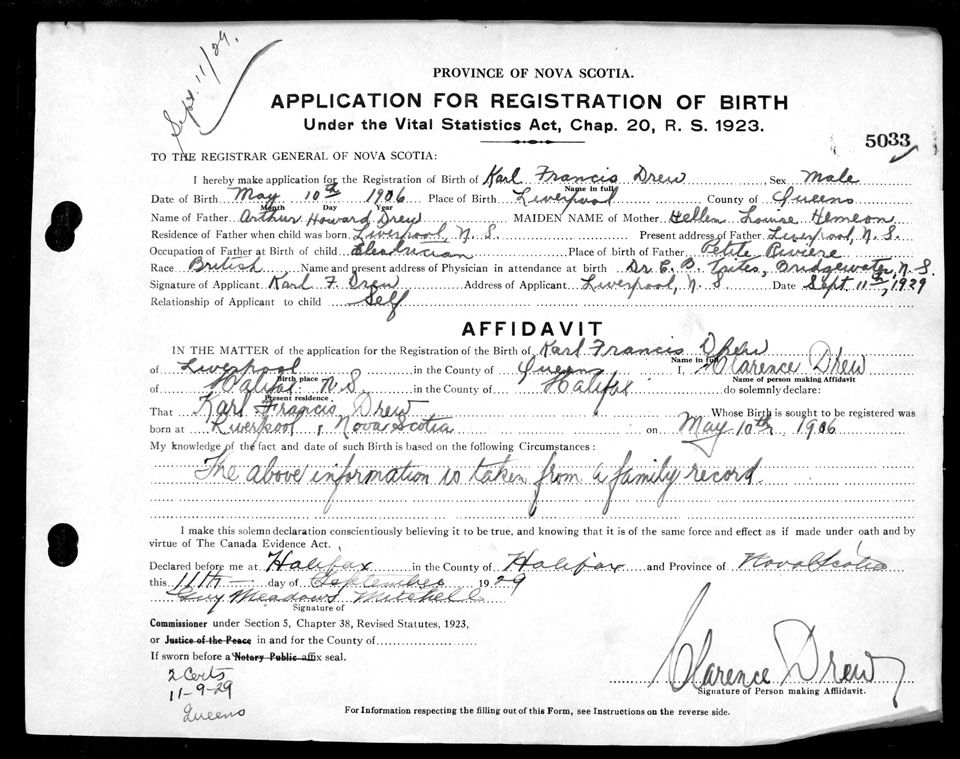 Sept. 11/29.
PROVINCE OF NOVA SCOTIA.
APPLICATION FOR REGISTRATION OF BIRTH
Under the Vital Statistics Act, Chap. 20, R. S. 1923.
5033
TO THE REGISTRAR GENERAL OF NOVA SCOTIA:
I hereby make application for the Registration of Birth of Karl Francis Drew Sex Male
Name in full
Date of Birth May 10th 1906 Place of Birth Liverpool County of Queens
Month Day Year
Name of Father Arthur Howard Drew MAIDEN NAME of Mother Hellen Louise Hemeon
Residence of Father when child was born Liverpool, N. S. Present address of Father Liverpool, N. S.
Occupation of Father at Birth of child Electrician Place of birth of Father Petite Riviere
Race British Name and present address of Physician in attendance at birth Dr. C. B. Trites, Bridgewater, N. S.
Signature of Applicant Karl F. Drew Address of Applicant Liverpool, N. S Date Sept. 11th, 1929
Relationship of Applicant to child Self
AFFIDAVIT
IN THE MATTER of the application for the Registration of the Birth of Karl Francis Drew
Name in full
of Liverpool in the County of Queens I, Clarence Drew
Birth place Name of person making Affidavit
of Halifax N. S. in the County of Halifax do solemnly declare:
Present residence.
That Karl Francis Drew Whose Birth is sought to be registered was
born at Liverpool, Nova Scotia on May 10th 1906
My knowledge of the fact and date of such Birth is based on the following Circumstances :
The above information is taken from a family record.
I make this solemn declaration conscientiously believing it to be true, and knowing that it is of the same force and effect as if made under oath and by
virtue of The Canada Evidence Act.
Declared before me at Halifax in the County of Halifax and Province of Nova Scotia
this 11th day of September 1929
Guy Meadows Mitchell
Signature of
Commissioner under Section 5, Chapter 38, Revised Statutes, 1923,
or Justice of the Peace in and for the County of
If sworn before a Notary Public affix seal.
Clarence Drew
Signature of Person making Affidavit.
2 Certs
11-9-29
Queens
For Information respecting the filling out of this Form, see Instructions on the reverse side.